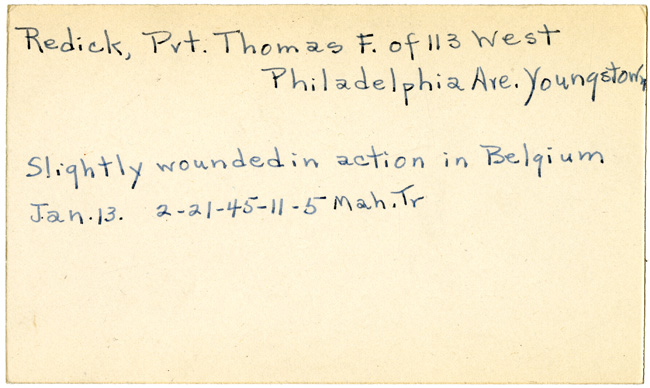 Redick, Pvt. Thomas F. of 113 West
Philadelphia Ave. Youngstown
Slightly wounded in action in Belgium
Jan. 13. 2-21-45-11-5 Mah. Tr